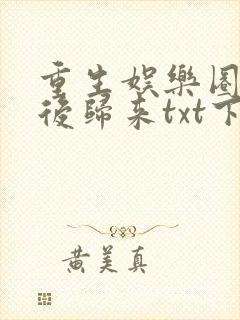 重生娱樂圈
後歸来txt下
黄美真